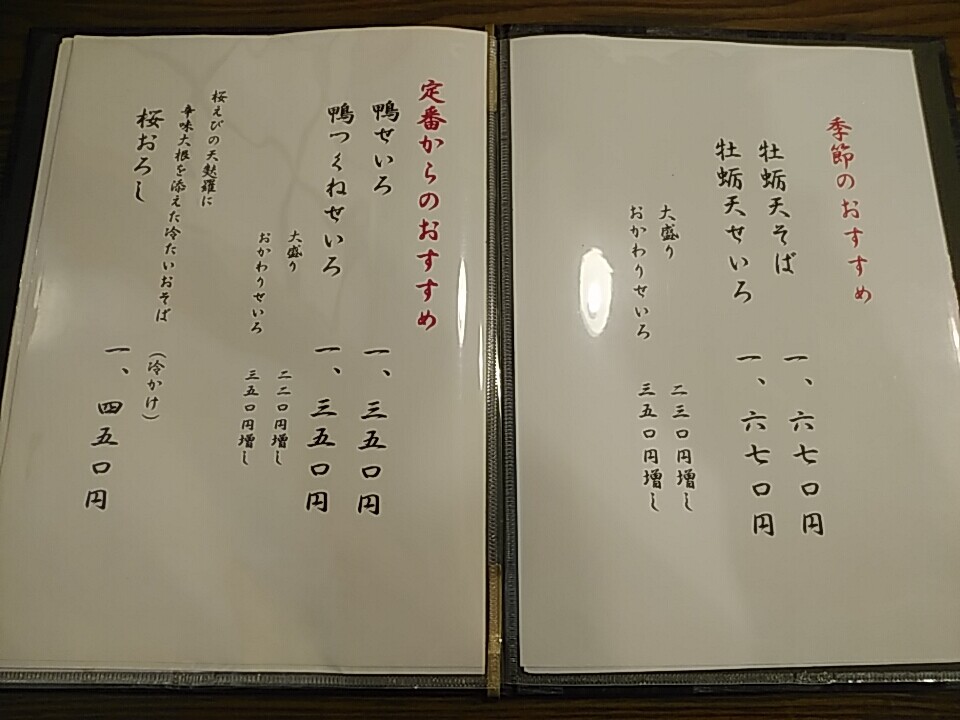 季節のおすすめ
牡蛎天そば 一、六七〇円
牡蛎天せいろ 一、六七〇円
大盛り 二三〇円増し
おかわりせいろ 三五〇円増し
定番からのおすすめ
鴨せいろ 一、三五〇円
鴨つくねせいろ 一、三五〇円
大盛り 二二〇円増し
おかわりせいろ 三五〇円増し
桜えびの天麩羅に
辛味大根を添えた冷たいおそば
(冷かけ)
桜おろし 一、四五〇円